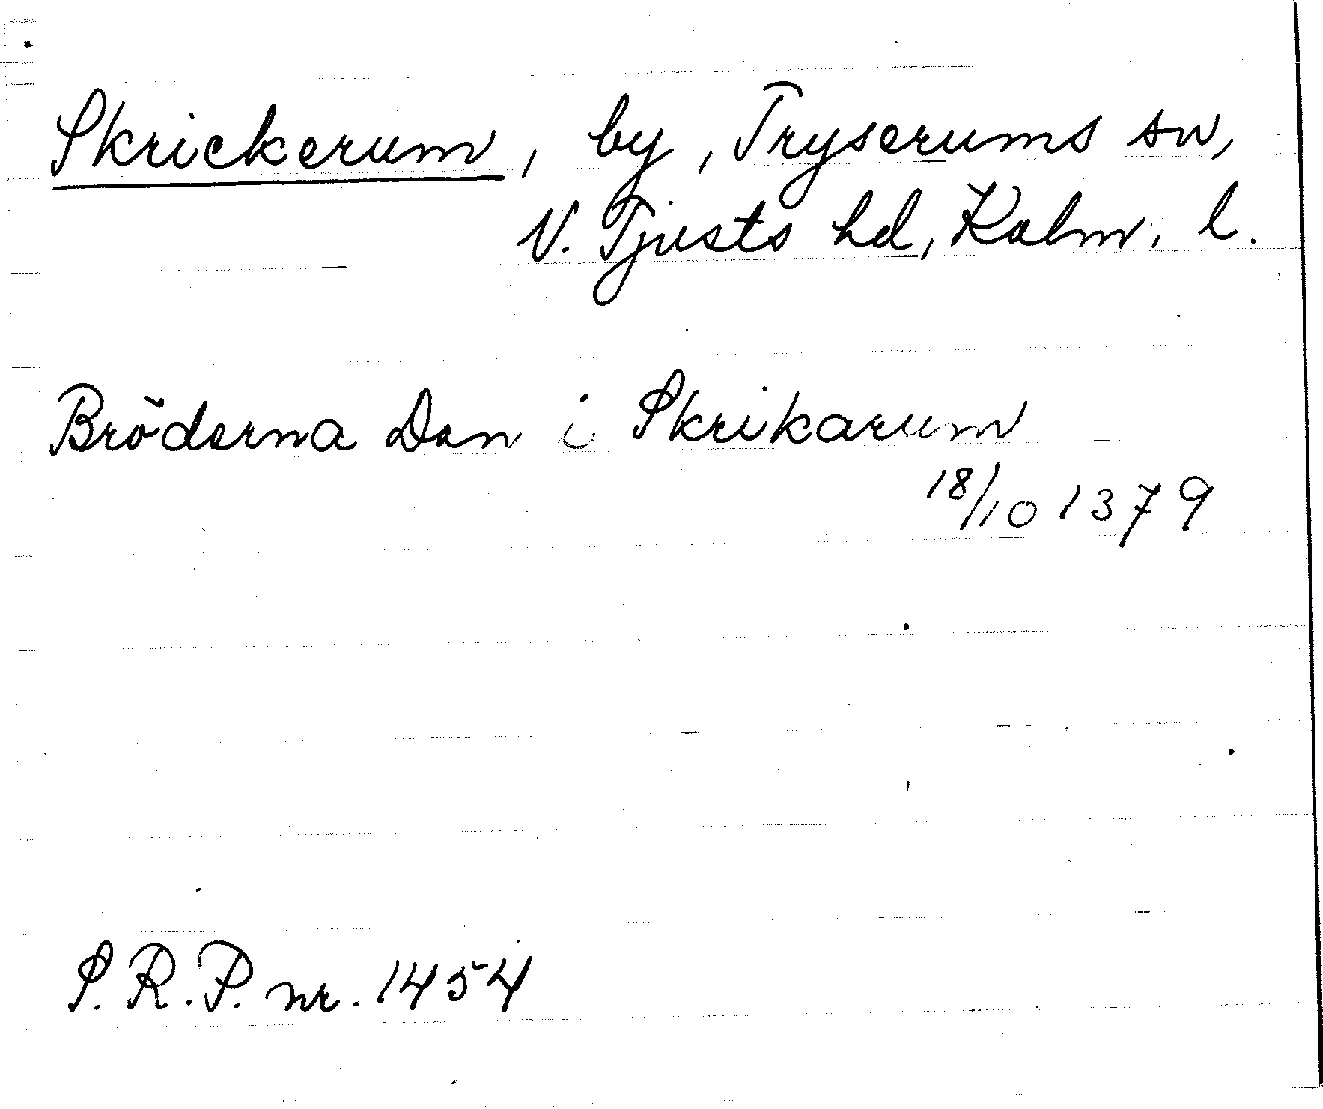 Skrickerum, by, Tryserums sn,
N. Tjusts hd, Kalm. l.
Bröderna Dan i Skrikarum
18/10 1379
S.R.P. nr. 1454